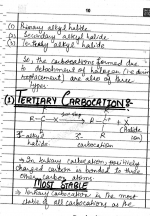 10
(1) Primary alkyl halide
(2) Secondary alkyl halide
(3) Tertiary alkyl halide
So, the carbocations formed due
to detachment of halogen (i.e. during
replacement) are also of three
types.
(1) TERTIARY CARBOCATION
R
R-C
X
R
3° alkyl
halide
carbocation
(halide
ion)
→ In tertiary carbocation, positively
charged carbon is bonded to three
other carbon atoms.
MOST STABLE
→ Tertiary carbocation is the most
stable of all carbocations as the